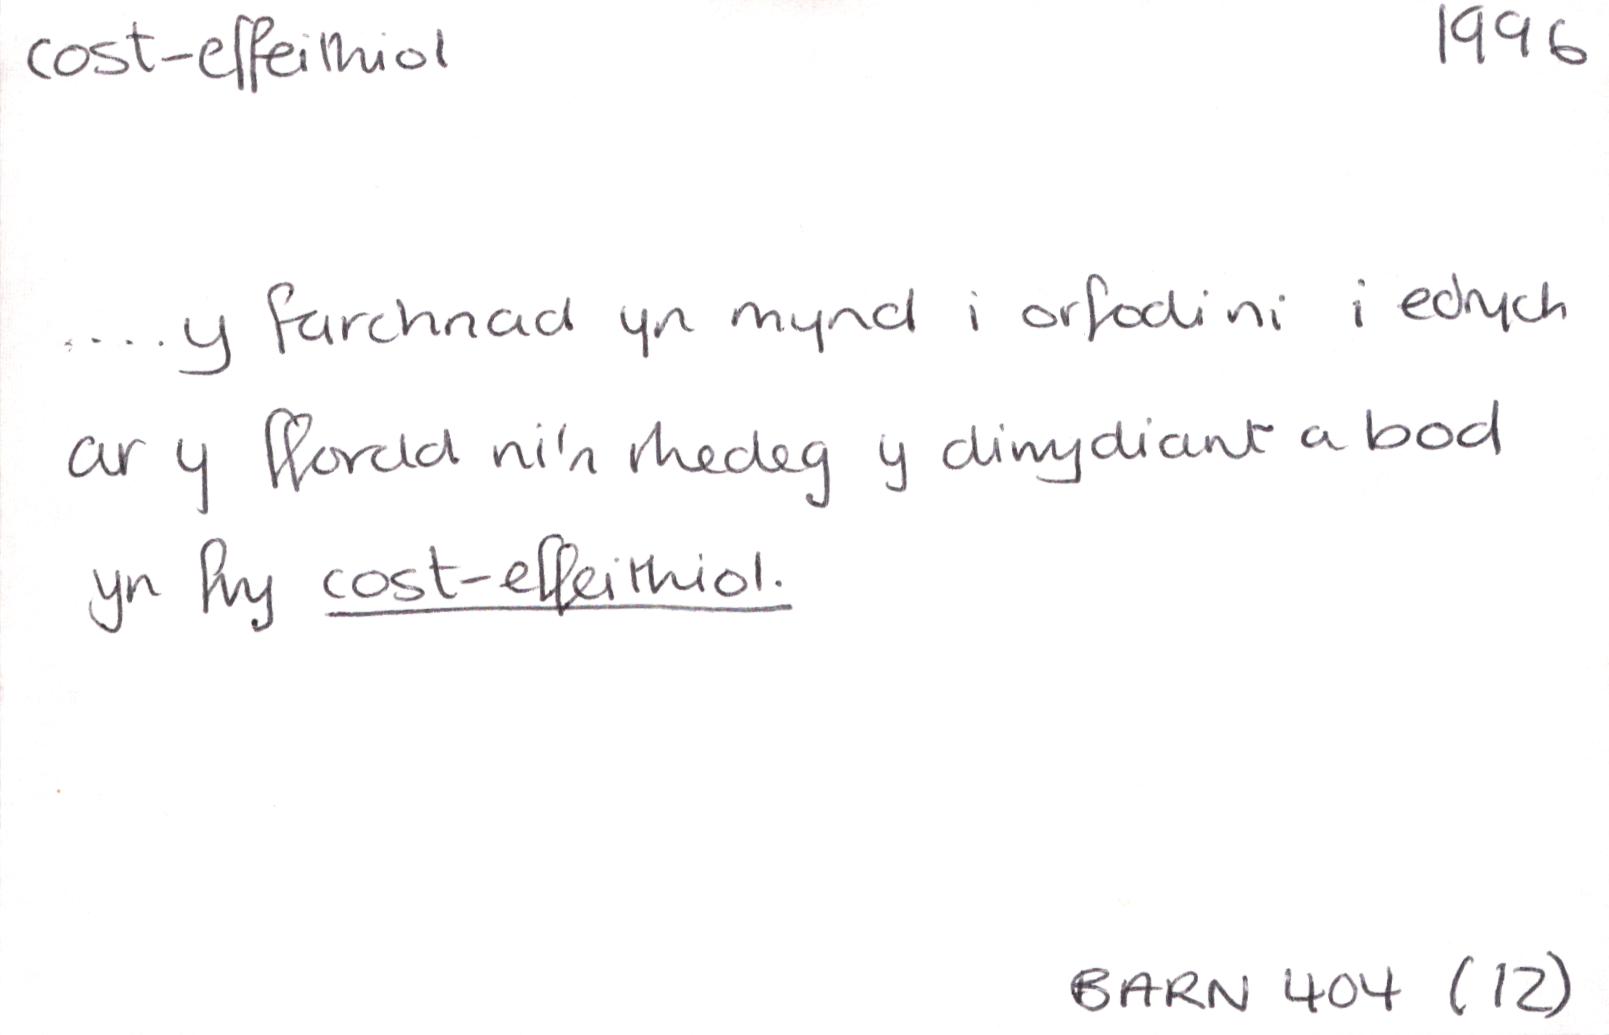 cost-effeithiol 1996
.....y farchnad yn mynd i orfodi ni i edrych
ar y ffordd ni'n rhedeg y diwydiant a bod
yn fwy cost-effeithiol.
BARN 404 (12)